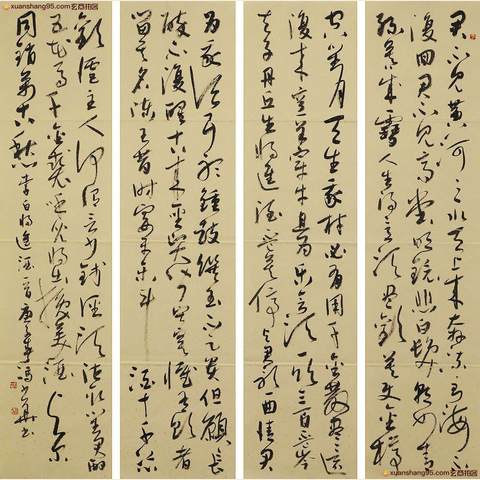 xuanshang95.com
君不见黄河之水天上来奔流到海不
復回君不见高堂明镜悲白发朝如青
丝暮成雪人生得意须尽欢莫使金樽
空对月天生我材必有用千金散尽还
復来烹羊宰牛且为乐会须一饮三百杯岑
夫子丹丘生将进酒杯莫停与君歌一曲请君
为我耳听钟鼓馔玉不足贵但愿长
醉不復醒古来圣贤皆寂寞惟有饮者
留其名陈王昔时宴平乐斗酒十千恣
欢谑主人何为言少钱径须沽取对君酌
五花马千金裘呼儿将出换美酒与尔
同销万古愁 李白将进酒 书
xuanshang95.com